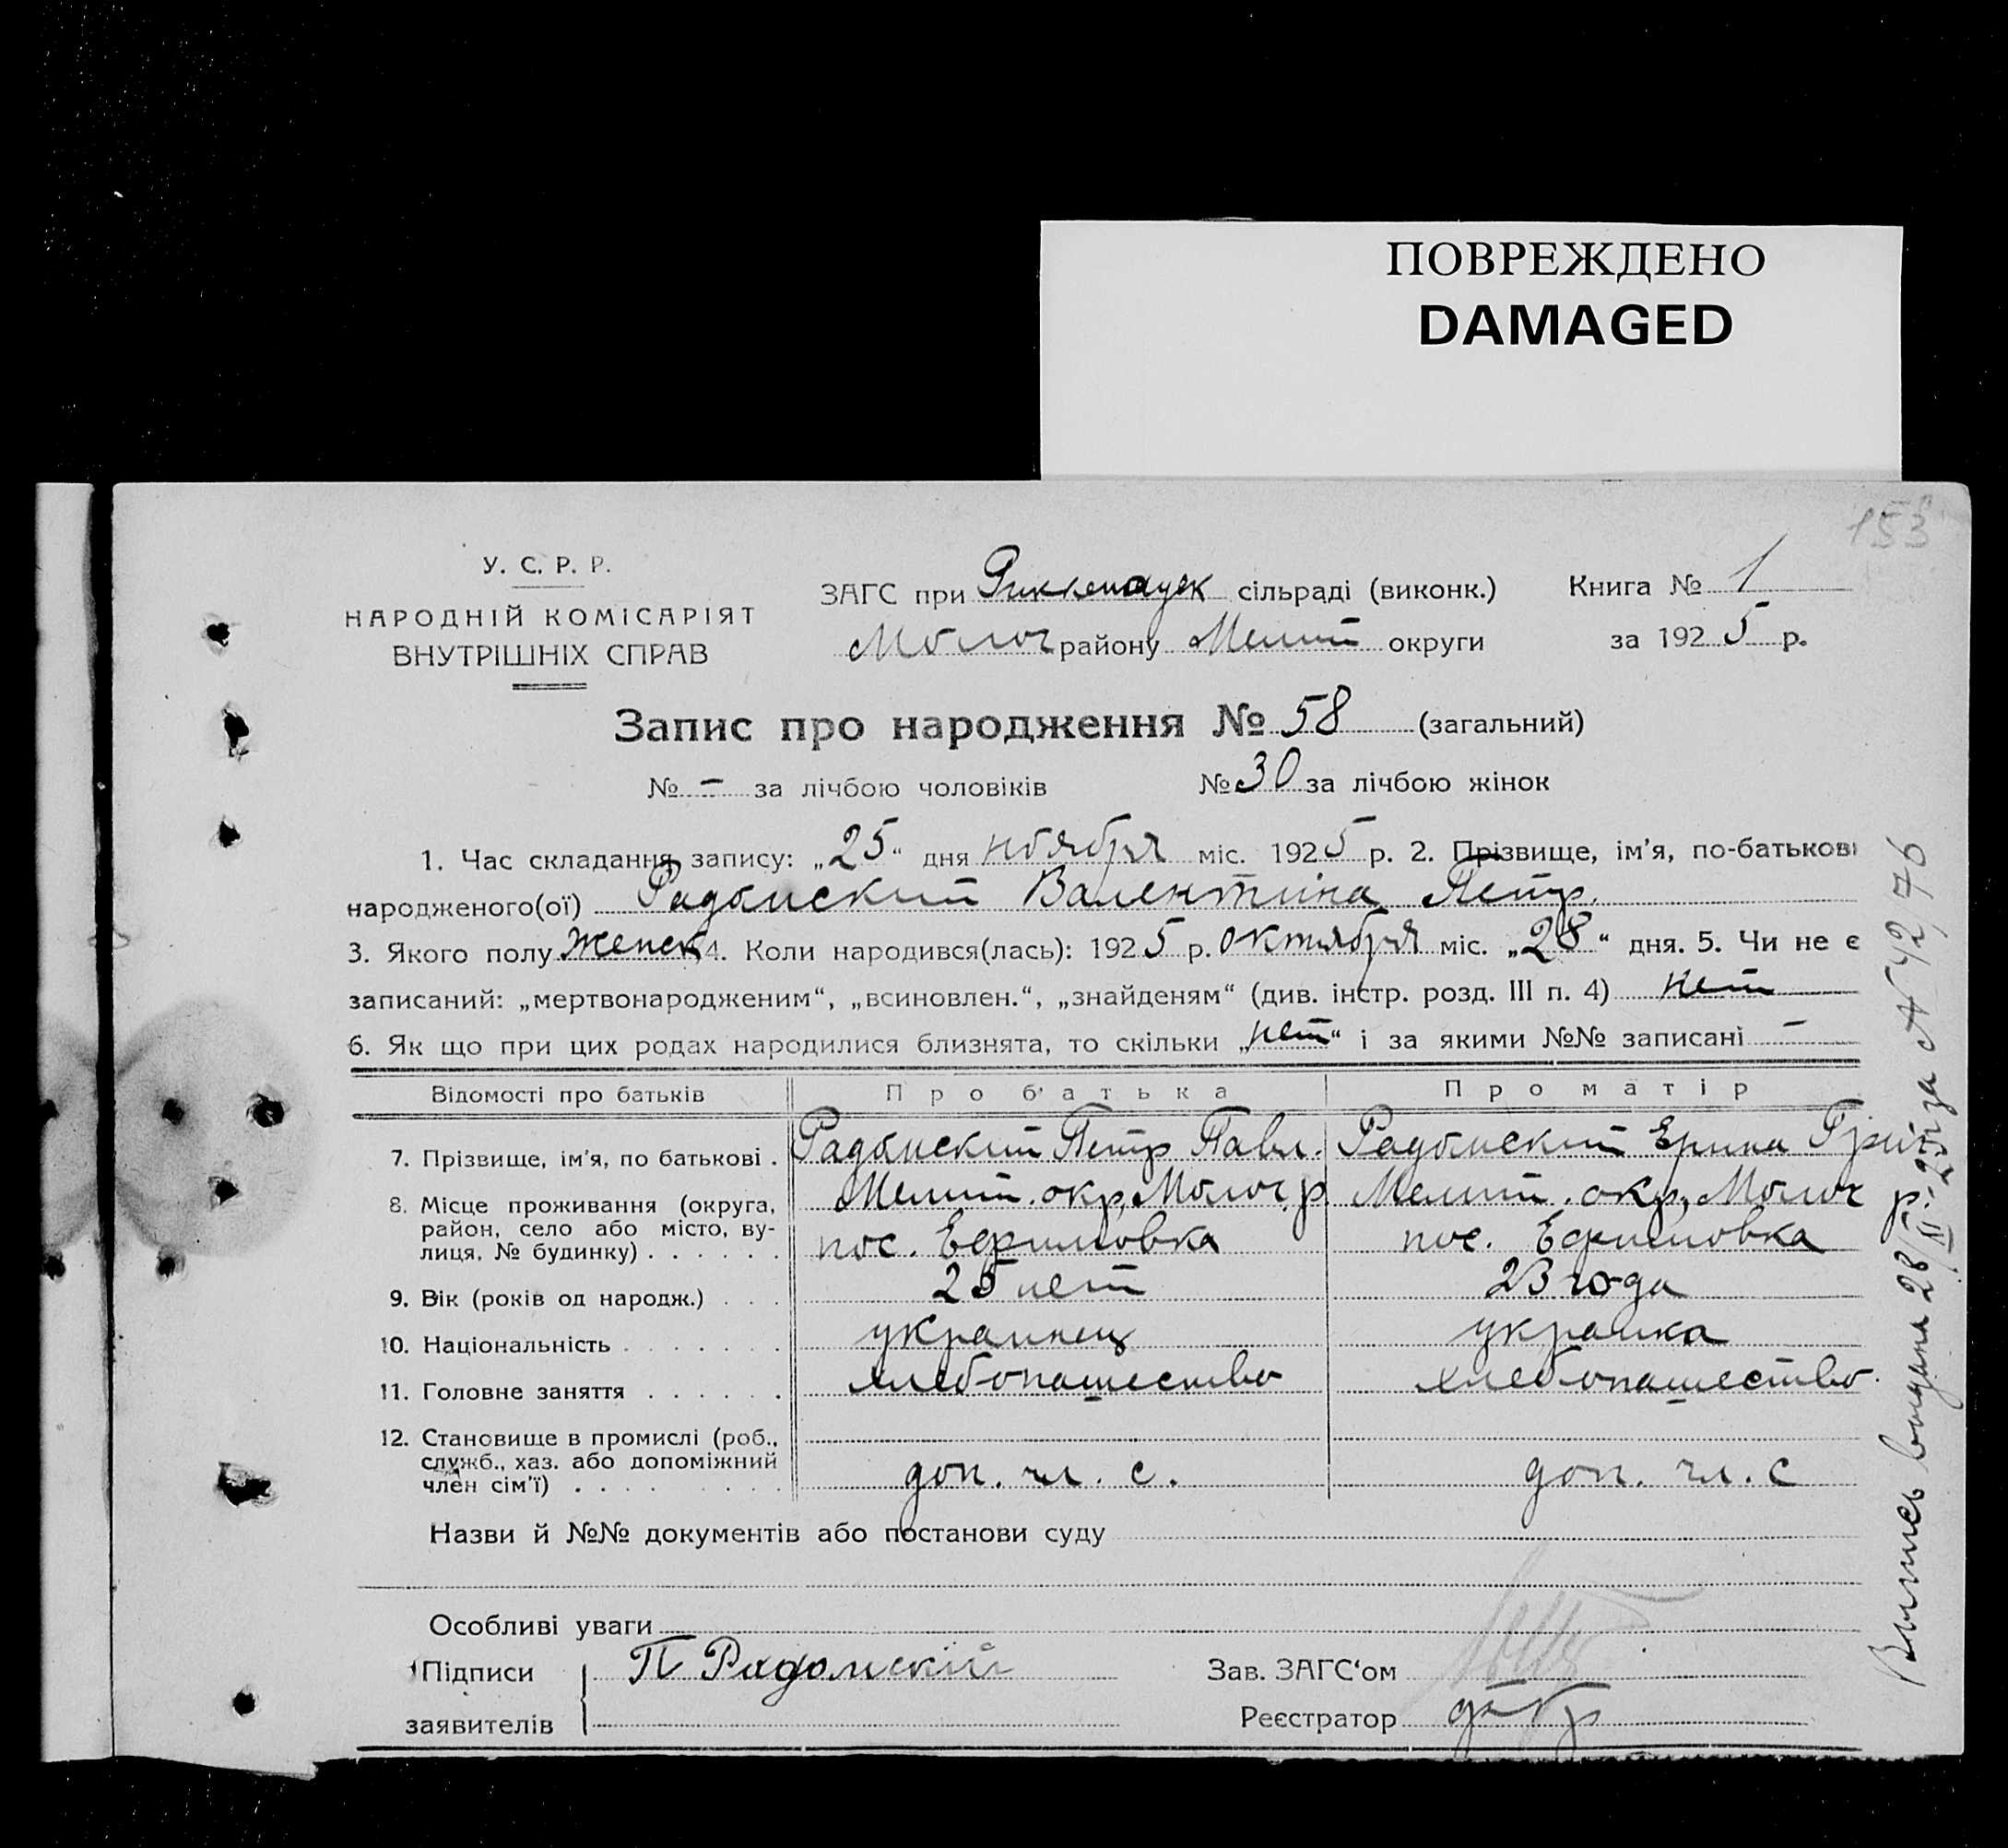 ПОВРЕЖДЕНО
DAMAGED
153
У. С. Р. Р.
НАРОДНІЙ КОМІСАРІЯТ
ВНУТРІШНІХ СПРАВ
ЗАГС при Риккенауск сільраді (виконк.)
Молоч району Мелит округи
Книга № 1
за 1925 р.
Запис про народження № 58 (загальний)
№ – за лічбою чоловіків № 30 за лічбою жінок
1. Час складання запису: „25“ дня ноября міс. 1925 р. 2. Прізвище, ім'я, по-батькові
народженого(ої) Радомский Валентина Петр.
3. Якого полу женск 4. Коли народився(лась): 1925 р. октября міс. „28“ дня. 5. Чи не є
записаний: „мертвонародженим“, „всиновлен.“, „знайденям“ (див. інстр. розд. III п. 4) нет
6. Як що при цих родах народилися близнята, то скільки „нет“ і за якими №№ записані –
Відомості про батьків Про батька Про матір
7. Прізвище, ім'я, по батькові . Радомский Петр Павл. Радомский Ерина Григ
8. Місце проживання (округа, район, село або місто, вулиця, № будинку) . . . . . . Мелит. окр, Молоч. р. пос. Ефимовка Мелит. окр, Молоч р. пос. Ефимовка
9. Вік (років од народж.) . . . 25 лет 23 года
10. Національність . . . . . . . украинец украинка
11. Головне заняття . . . . . . хлебопашество хлебопашество.
12. Становище в промислі (роб., служб., хаз. або допоміжний член сім'ї) . . . . . . . . . доп. чл. с. доп. чл. с
Назви й №№ документів або постанови суду
Особливі уваги
Підписи П Радомскій
заявителів
Зав. ЗАГС'ом
Реєстратор
Выпись выдана 28/XI-25 г за №